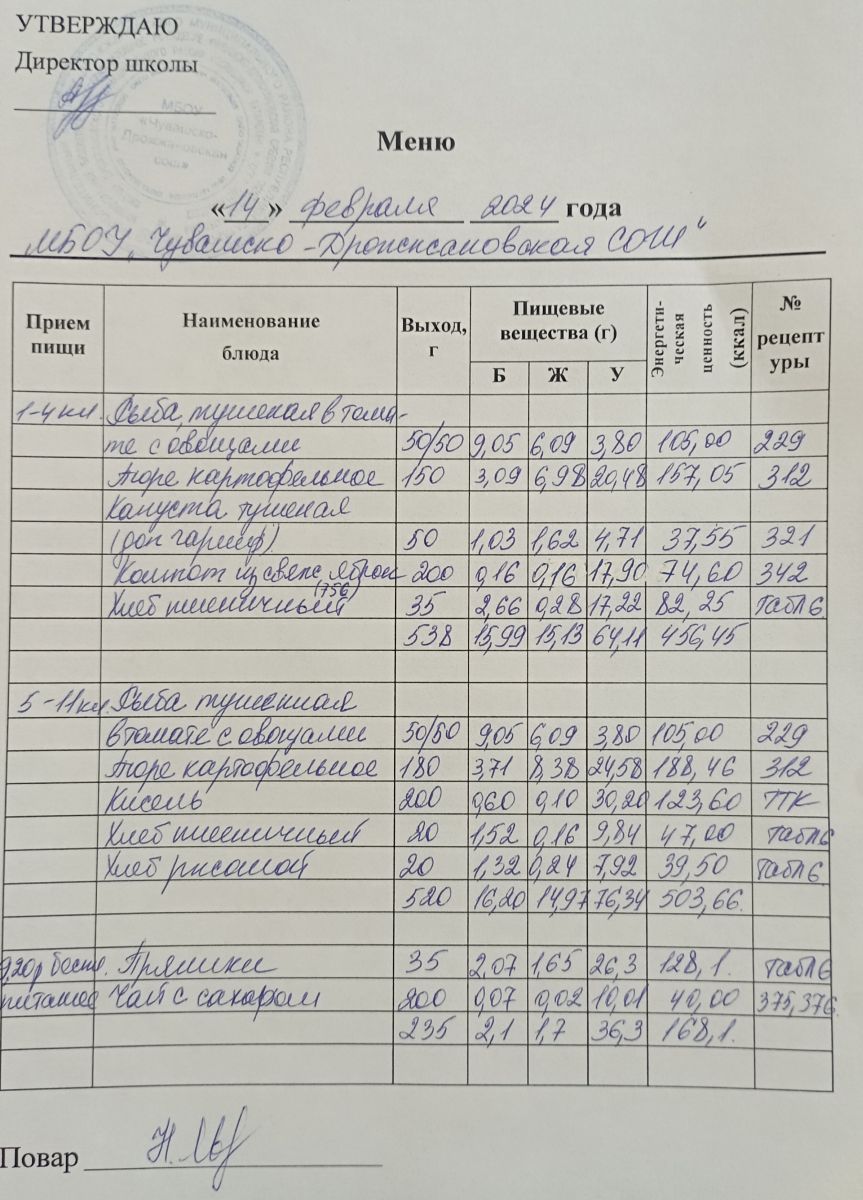 УТВЕРЖДАЮ
Директор школы
МБОУ
«Чувашско-
Дрожжановская
сош»
Меню
«14» февраля 2024 года
МБОУ „Чувашско-Дрожжановская СОШ"
Прием пищи Наименование блюда Выход, г Пищевые вещества (г) Б Ж У Энергети-ческая ценность (ккал) № рецепт уры
1-4 кл. Рыба, тушеная в тома-
те с овощами 50/50 9,05 6,09 3,80 105,00 229
Пюре картофельное 150 3,09 6,98 20,48 157,05 312
Капуста тушеная
(доп гарнир) 50 1,03 1,62 4,71 37,55 321
Компот из свеж. яблок 200 0,16 0,16 17,90 74,60 342
Хлеб пшеничный 35 2,66 0,28 17,22 82,25 табл 6
538 15,99 15,13 64,11 456,45
5-11 кл. Рыба тушенная
в томате с овощами 50/50 9,05 6,09 3,80 105,00 229
Пюре картофельное 180 3,71 8,38 24,58 188,46 312
Кисель 200 0,60 0,10 30,20 123,60 ТТК
Хлеб пшеничный 20 1,52 0,16 9,84 47,00 табл 6
Хлеб ржаной 20 1,32 0,24 7,92 39,50 табл 6
520 16,20 14,97 76,34 503,66.
9,20р беспл. Пряники 35 2,07 1,65 26,3 128,1. табл 6
питание Чай с сахаром 200 0,07 0,02 10,01 40,00 375,376.
235 2,1 1,7 36,3 168,1.
Повар